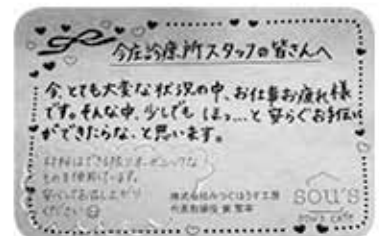 今庄診療所スタッフの皆さんへ
今、とても大変な状況の中、お仕事お疲れ様
です。そんな中、少しでも ほっ…と 安らぐお手伝い
ができたらな、と思います。
材料はできる限りオーガニックな
ものを使用しています。
安心してお召し上がり
ください☺
株式会社みつぐはうす工房
代表取締役
SOU'S
sou's cafe